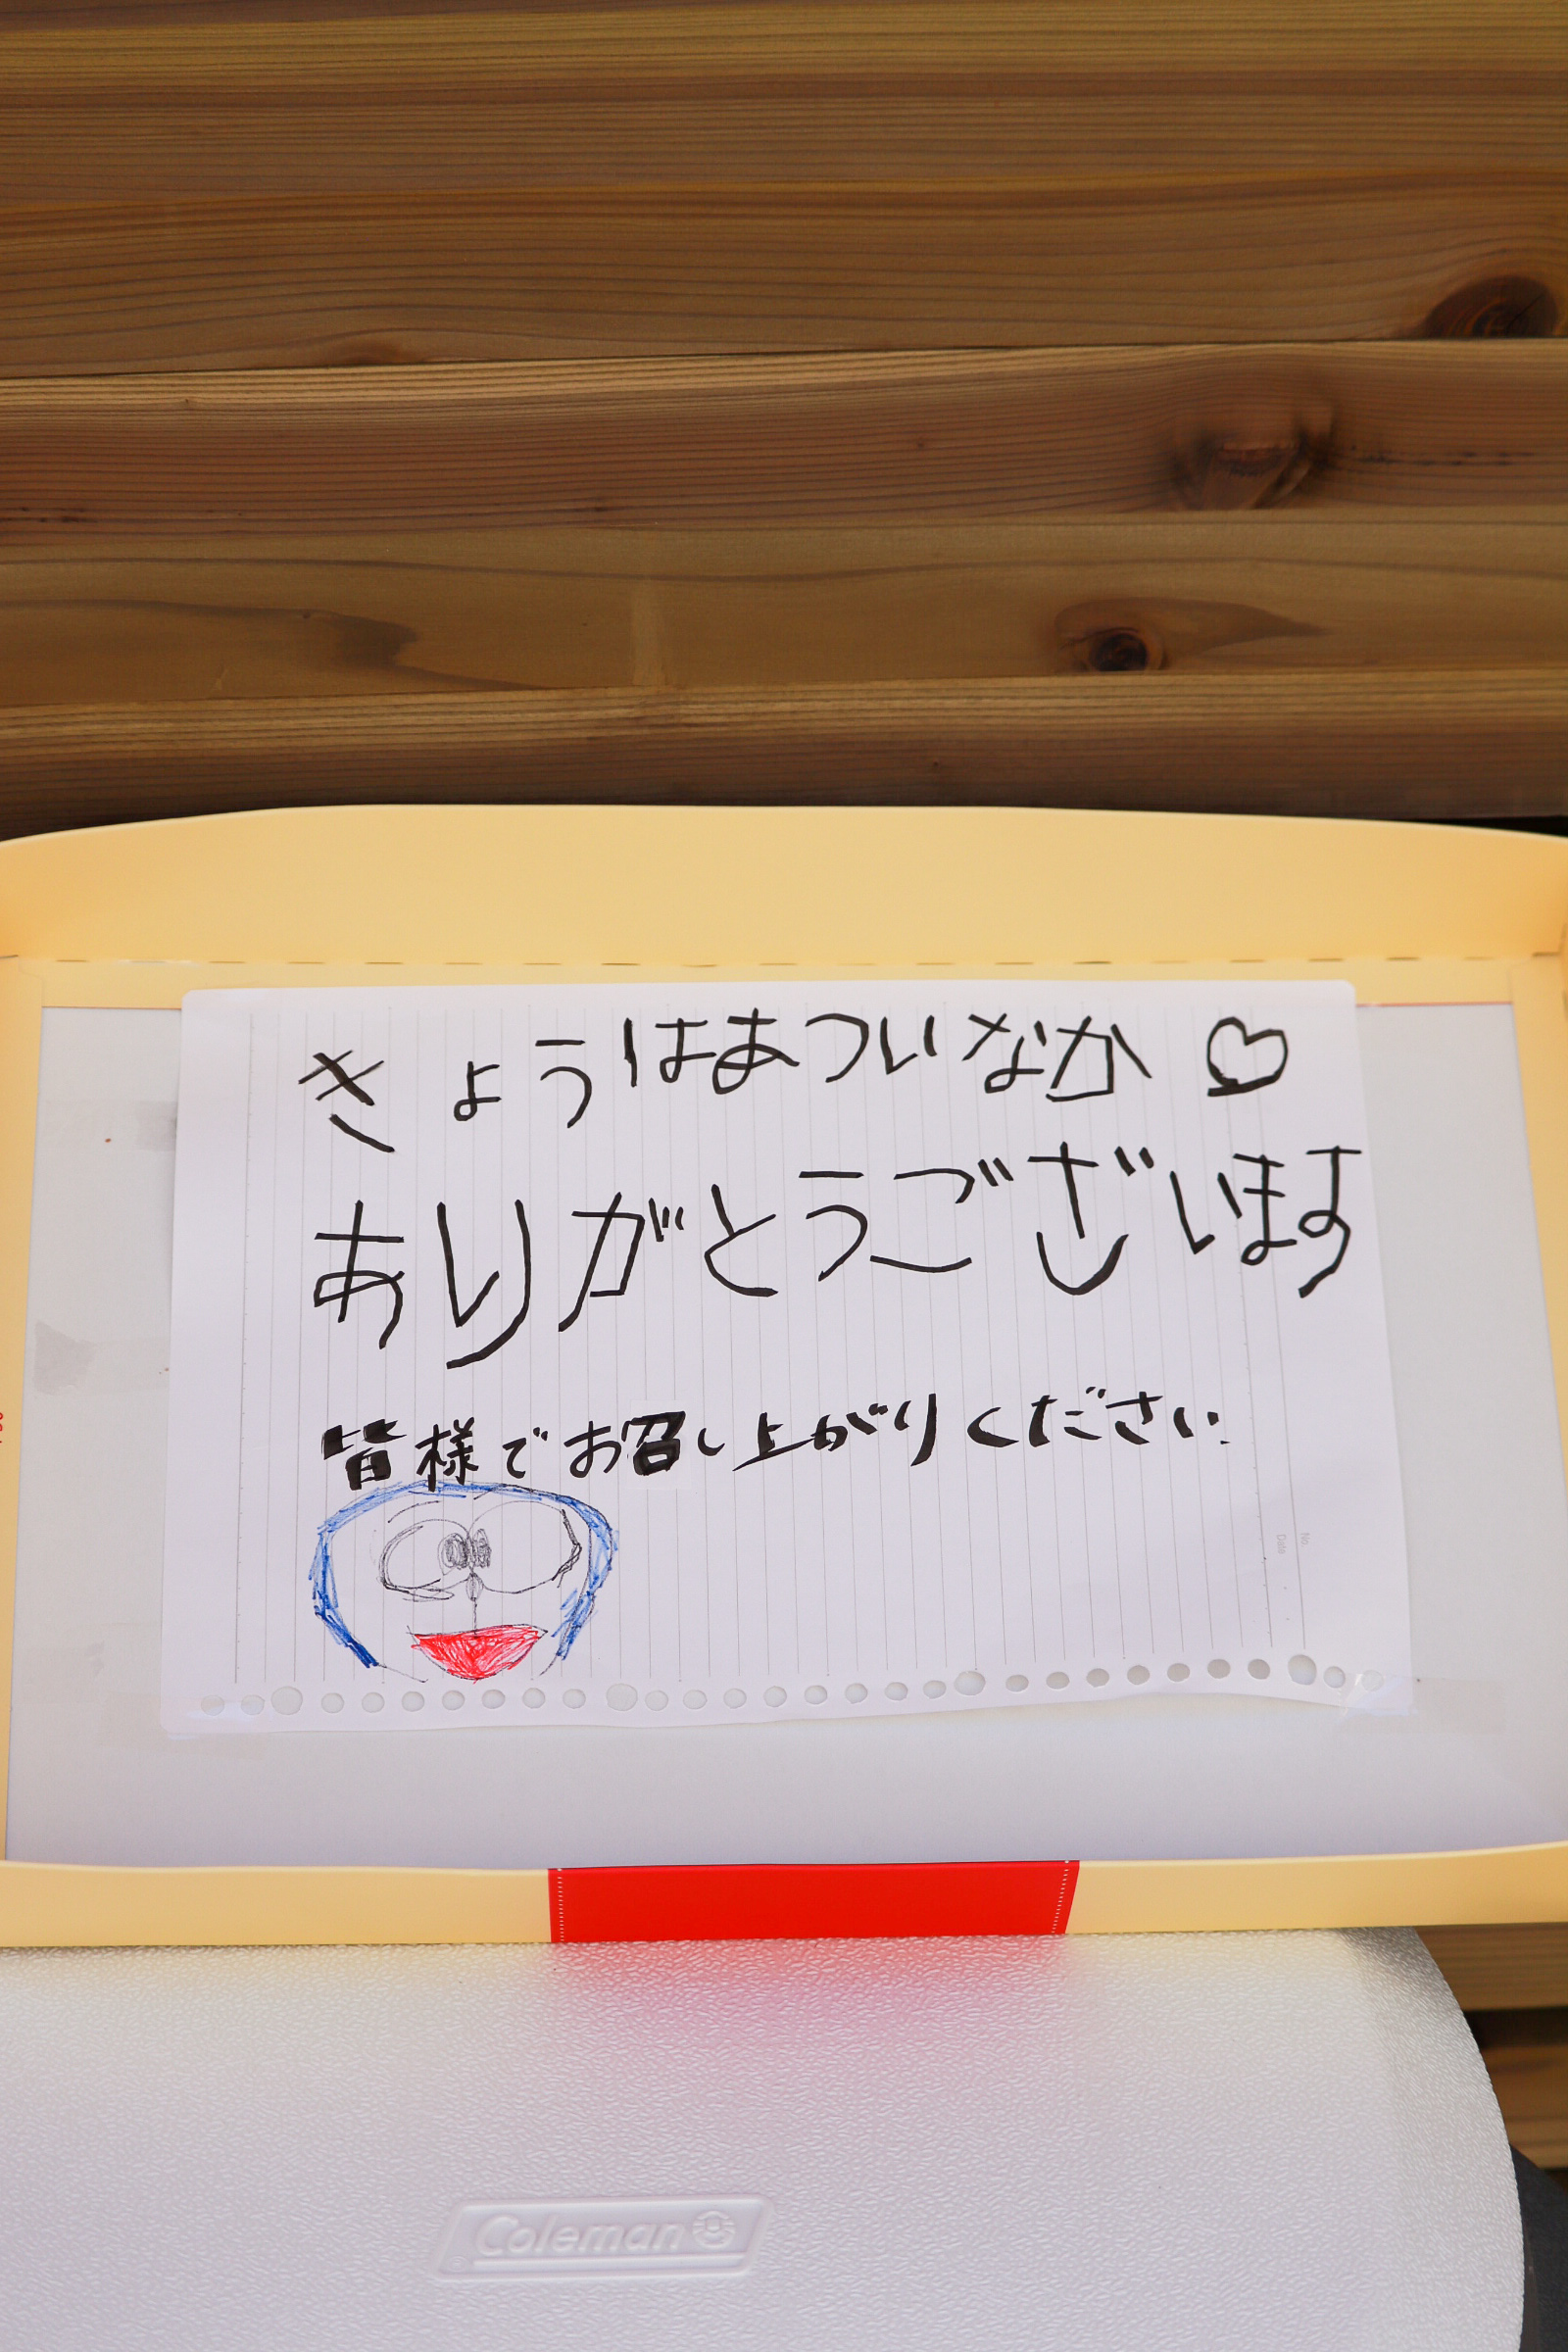 きょうはあついなか♡
ありがとうございます
皆様でお召し上がりください.
No.
Date
Coleman